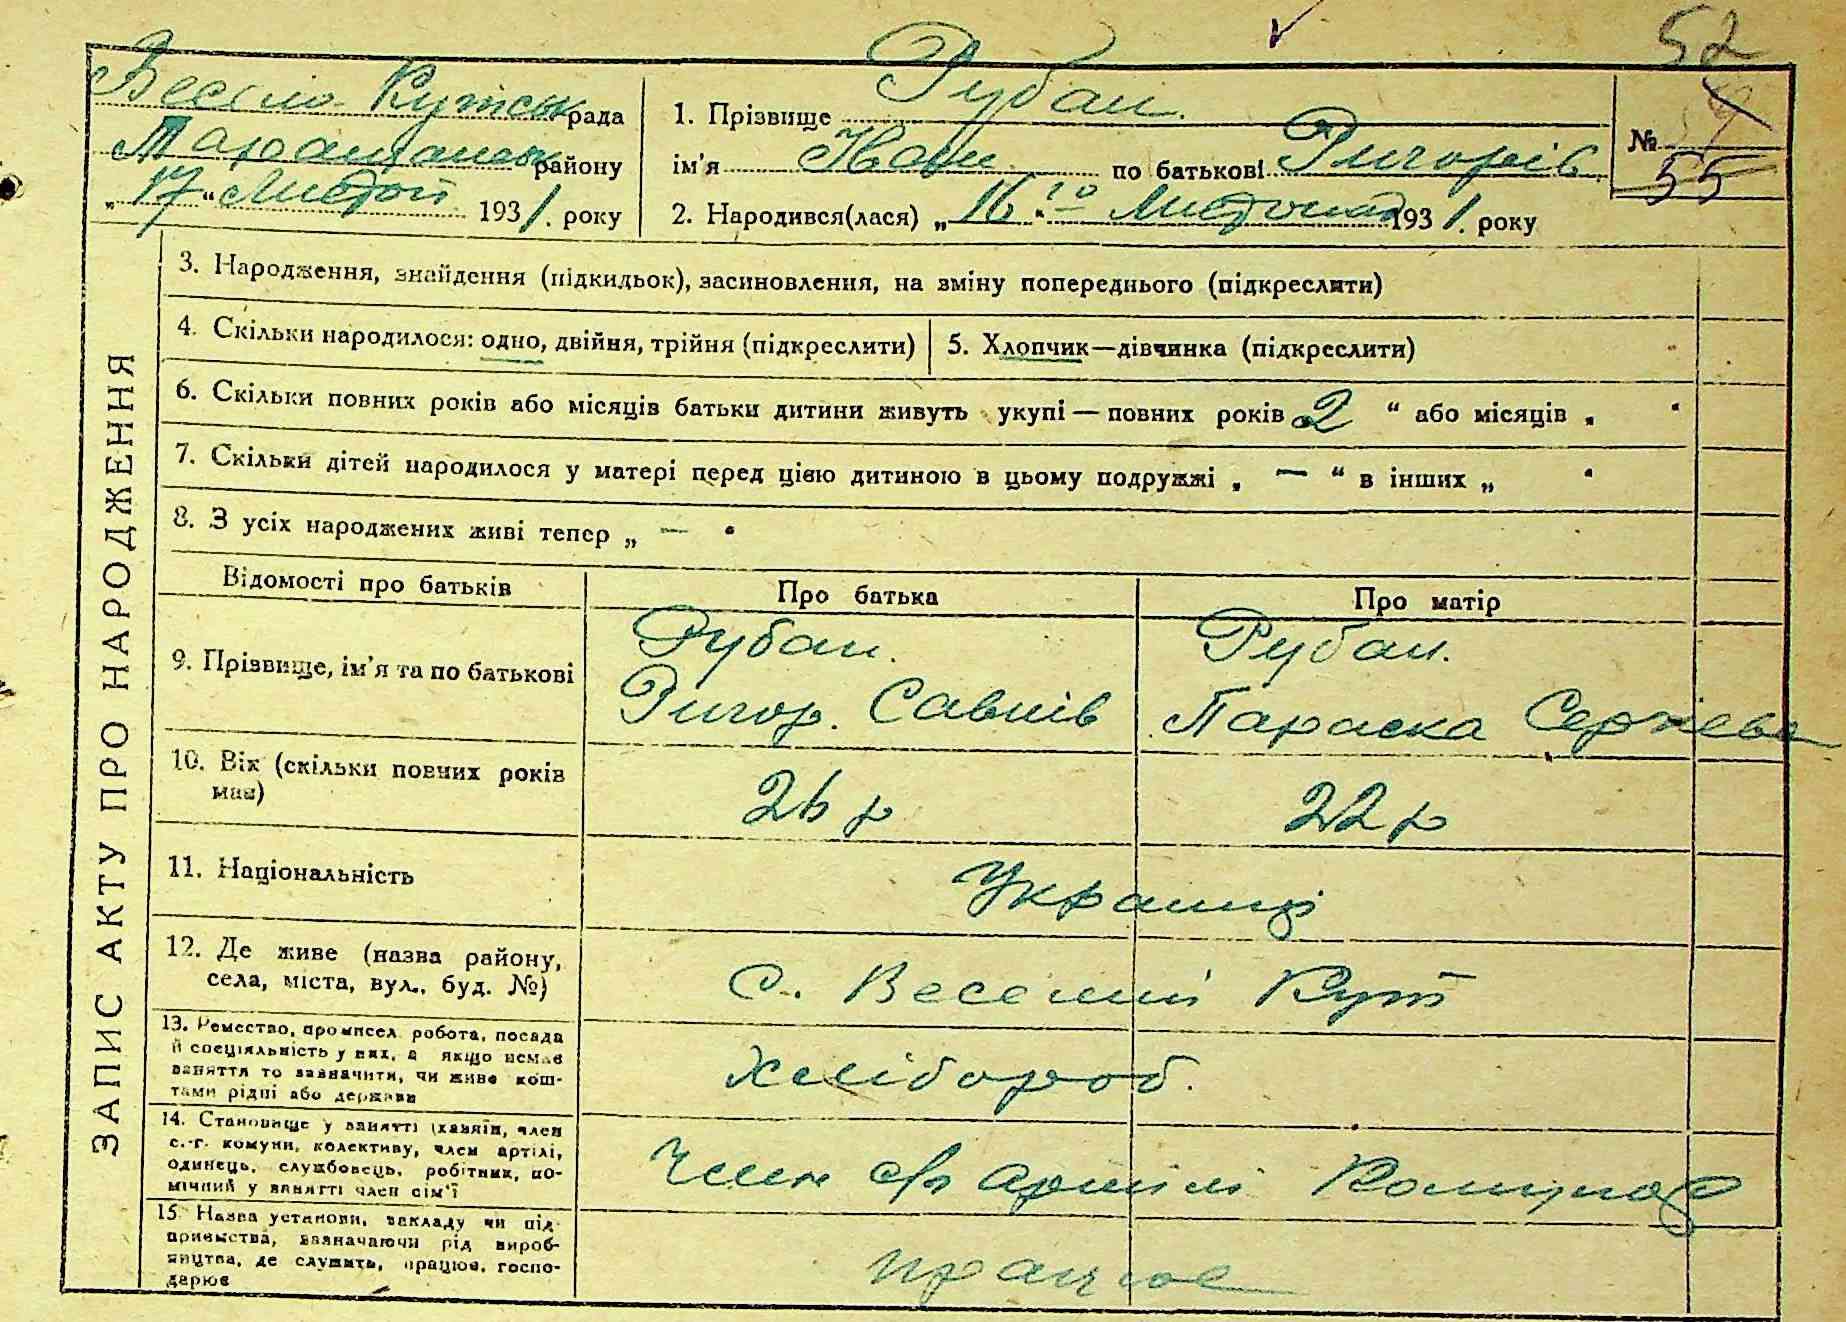 52
Весело Кутськ рада
Таращанськ району
„17“ Листоп 1931. року
1. Прізвище Рубан.
ім'я Іван по батькові Ригорів
2. Народився(лася) „16“ го Листопад 1931. року
№ 55
ЗАПИС АКТУ ПРО НАРОДЖЕННЯ
3. Народження, знайдення (підкидьок), засиновлення, на зміну попереднього (підкреслити)
4. Скільки народилося: одно, двійня, трійня (підкреслити)
5. Хлопчик—дівчинка (підкреслити)
6. Скільки повних років або місяців батьки дитини живуть укупі — повних років „2“ або місяців „ "
7. Скільки дітей народилося у матері перед цією дитиною в цьому подружжі „ — “ в інших „ "
8. З усіх народжених живі тепер „ — "
Відомості про батьків
Про батька
Про матір
9. Прізвище, ім'я та по батькові
Рубан.
Ригор. Савків
Рубан.
Параска Сергіева
10. Вік (скільки повних років
має)
26 р
22 р
11. Національність
Українці
12. Де живе (назва району,
села, міста, вул., буд. №)
с. Веселий Кут
13. Ремество, промисел, робота, посада
й спеціяльність у них, а якщо немає
заняття то зазначити, чи живе кош-
тами рідні або держави
хлібороб.
14. Становище у занятті (хазяїн, член
с.-г. комуни, колективу, член артілі,
одинець, службовець, робітник, по-
мічний у занятті член сім'ї
Член с/г артілі Комунар
15. Назва установи, закладу чи під-
приємства, зазначаючи рід вироб-
ництва, де служить, працює, госпо-
дарює
працює